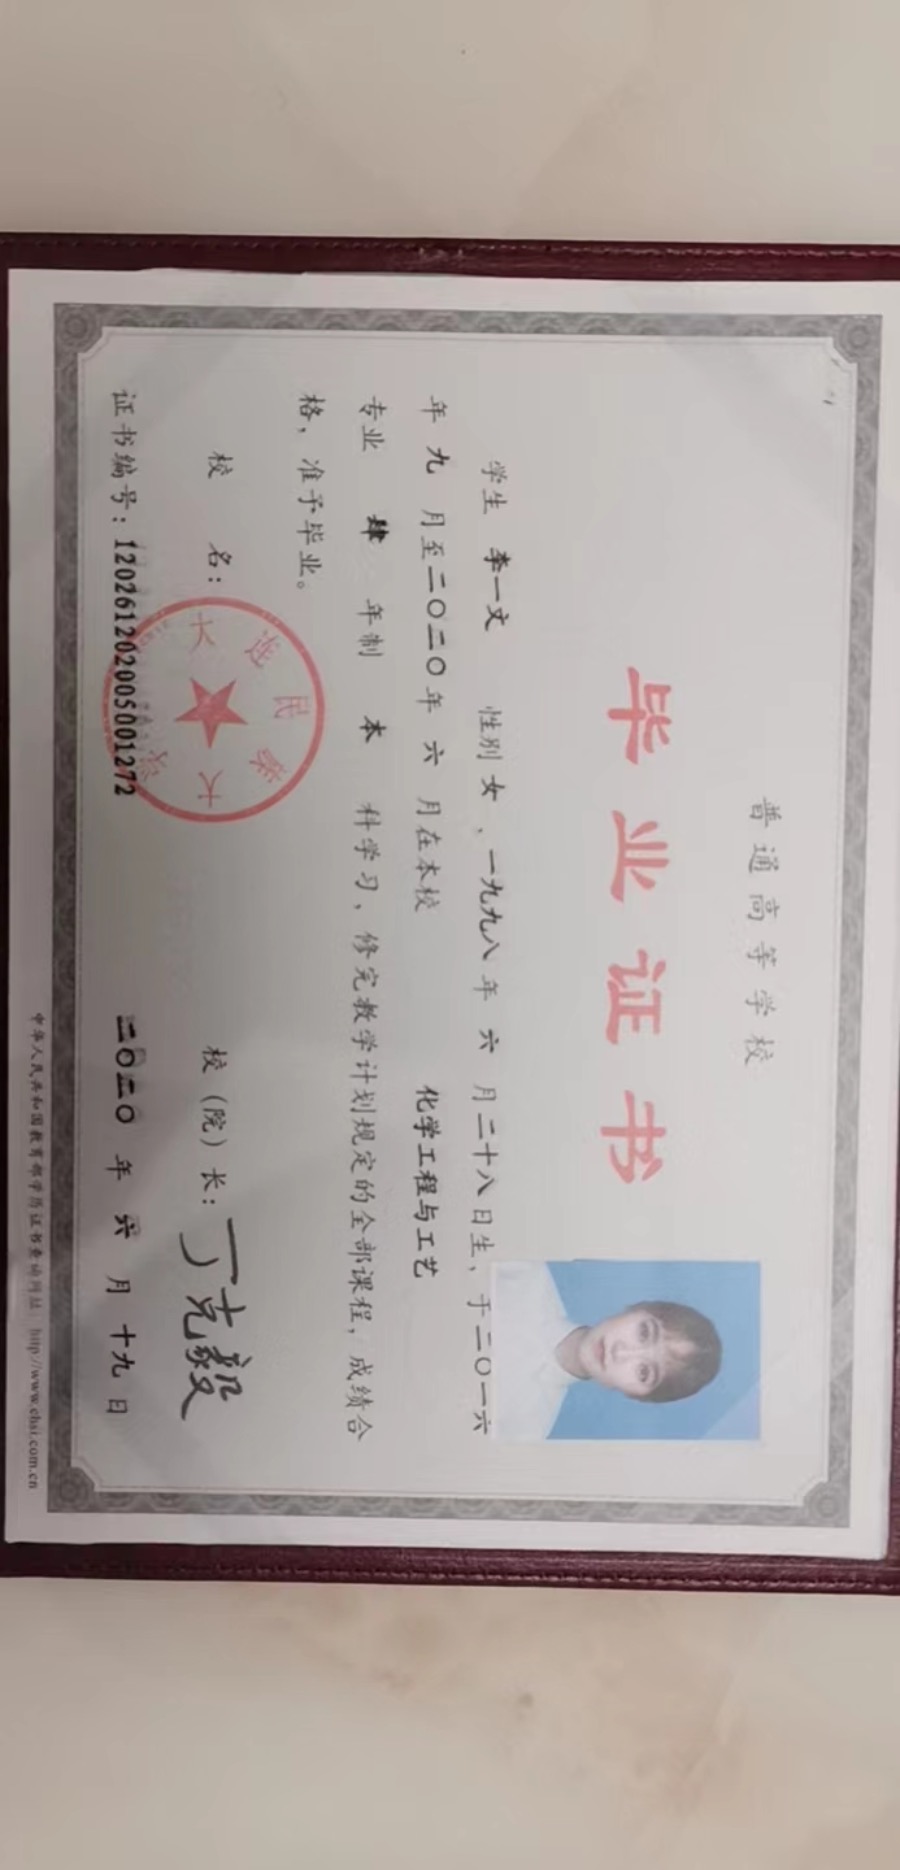 普通高等学校
毕业证书
学生 李一文 性别 女 、一九九八 年 六 月 二十八 日生、于 二〇一六
年 九 月至 二〇二〇 年 六 月在本校 化学工程与工艺
专业 肆 年制 本 科学习、修完教学计划规定的全部课程，成绩合
格，准予毕业。
校 名： 校（院）长：丁克毅
大连民族大学
证书编号：120261202005001272 二〇二〇 年 六 月 十九 日
中华人民共和国教育部学历证书查询网址 http://www.chsi.com.cn